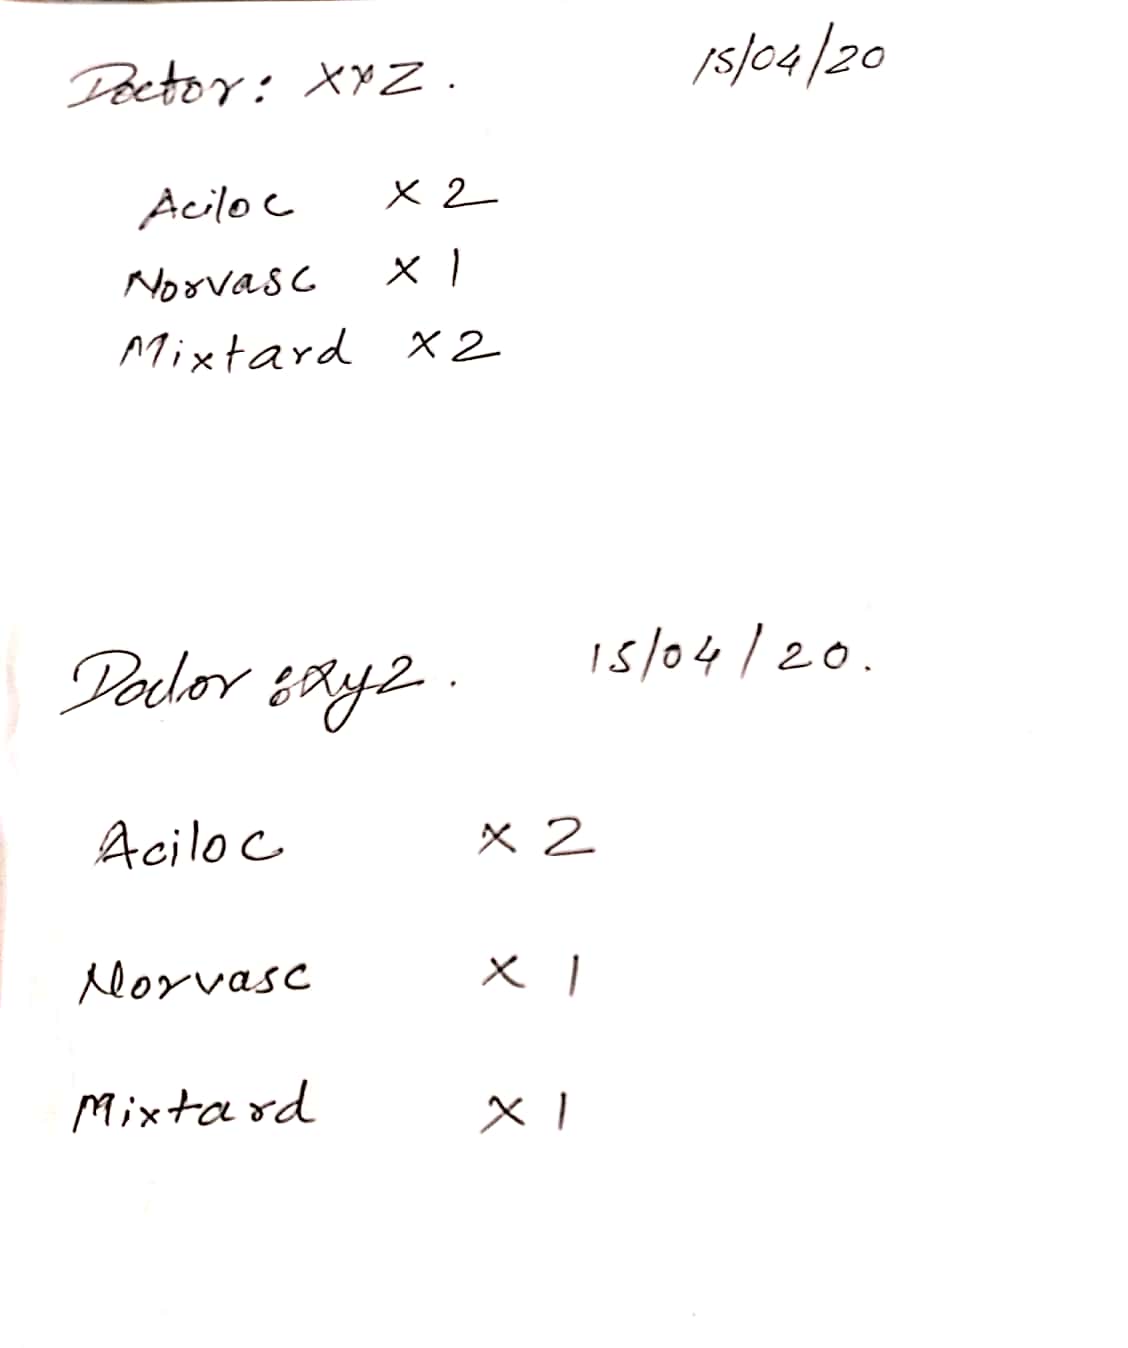 Doctor: XYZ. 15/04/20
Aciloc x 2
Norvasc x 1
Mixtard x 2
Doctor : xyz. 15/04/20.
Aciloc x 2
Norvasc x 1
Mixtard x 1